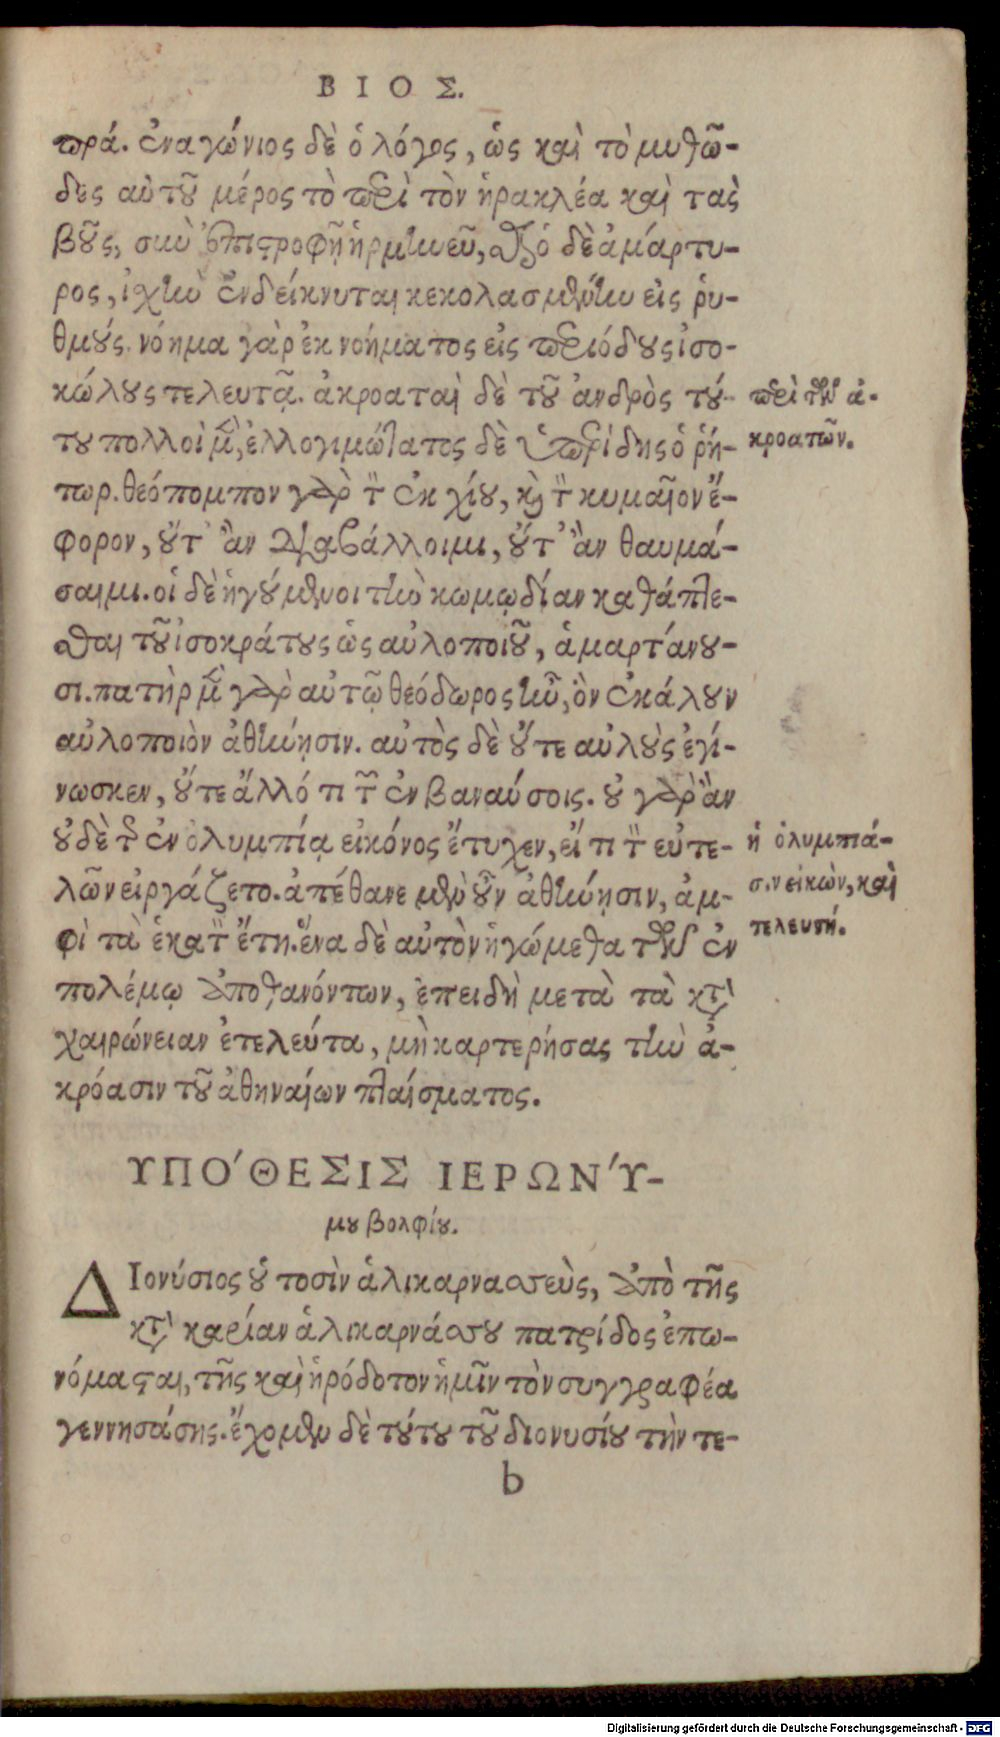 ΒΙΟΣ.
πρά. ἐναγώνιος δὲ ὁ λόγος, ὡς καὶ τὸ μυθῶ-
δες αὐτοῦ μέρος τὸ περὶ τὸν ἡρακλέα καὶ τὰς
βοῦς, σὺν ἐπιστροφῇ ἡρμήνευται, ὁ δὲ ἀμάρτυ-
ρος, ἰσχὺν ἐνδείκνυται κεκολασμένην εἰς ῥυ-
θμούς. νόημα γὰρ ἐκ νοήματος εἰς περιόδους ἰσο-
κώλους τελευτᾷ. ἀκροαταὶ δὲ τοῦ ἀνδρὸς τού-
του πολλοὶ μὲν, ἐλλογιμώτατος δὲ ὑπερίδης ὁ ῥή-
τωρ. θεόπομπον γὰρ τὸν ἐκ χίου, καὶ τὸν κυμαῖον ἔ-
φορον, οὔτ' ἂν διαβάλλοιμι, οὔτ' ἂν θαυμά-
σαιμι. οἱ δὲ ἡγούμενοι τὴν κωμῳδίαν καθάπτε-
σθαι τοῦ ἰσοκράτους ὡς αὐλοποιοῦ, ἁμαρτάνου-
σι. πατὴρ μὲν γὰρ αὐτῷ θεόδωρος ἦν, ὃν ἐκάλουν
αὐλοποιὸν ἀθήνῃσιν. αὐτὸς δὲ οὔτε αὐλοὺς ἐγί-
νωσκεν, οὔτε ἄλλό τι τῶν ἐν βαναύσοις. οὐ γὰρ ἂν
οὐδὲ τῆς ἐν ὀλυμπίᾳ εἰκόνος ἔτυχεν, εἴ τι τῶν εὐτε-
λῶν εἰργάζετο. ἀπέθανε μὲν οὖν ἀθήνῃσιν, ἀμ-
φὶ τὰ ἑκατὸν ἔτη. ἕνα δὲ αὐτὸν ἡγώμεθα τῶν ἐν
πολέμῳ ἀποθανόντων, ἐπειδὴ μετὰ τὰ κατὰ
χαιρώνειαν ἐτελεύτα, μὴ καρτερήσας τὴν ἀ-
κρόασιν τοῦ ἀθηναίων πταίσματος.
περὶ τῶν ἀ-
κροατῶν.
ἡ ὀλυμπιά-
σιν εἰκὼν, καὶ
τελευτή.
ΥΠΟ΄ΘΕΣΙΣ ΙΕΡΩΝ΄Υ-
μου βολφίου.
ΔΙονύσιος οὑτοσὶν ἁλικαρνασσεὺς, ἀπὸ τῆς
κατὰ καρίαν ἁλικαρνάσσου πατρίδος ἐπω-
νόμασται, τῆς καὶ ἡρόδοτον ἡμῖν τὸν συγγραφέα
γεννησάσης. ἔχομεν δὲ τούτου τοῦ διονυσίου τὴν τε-
b
Digitalisierung gefördert durch die Deutsche Forschungsgemeinschaft - DFG